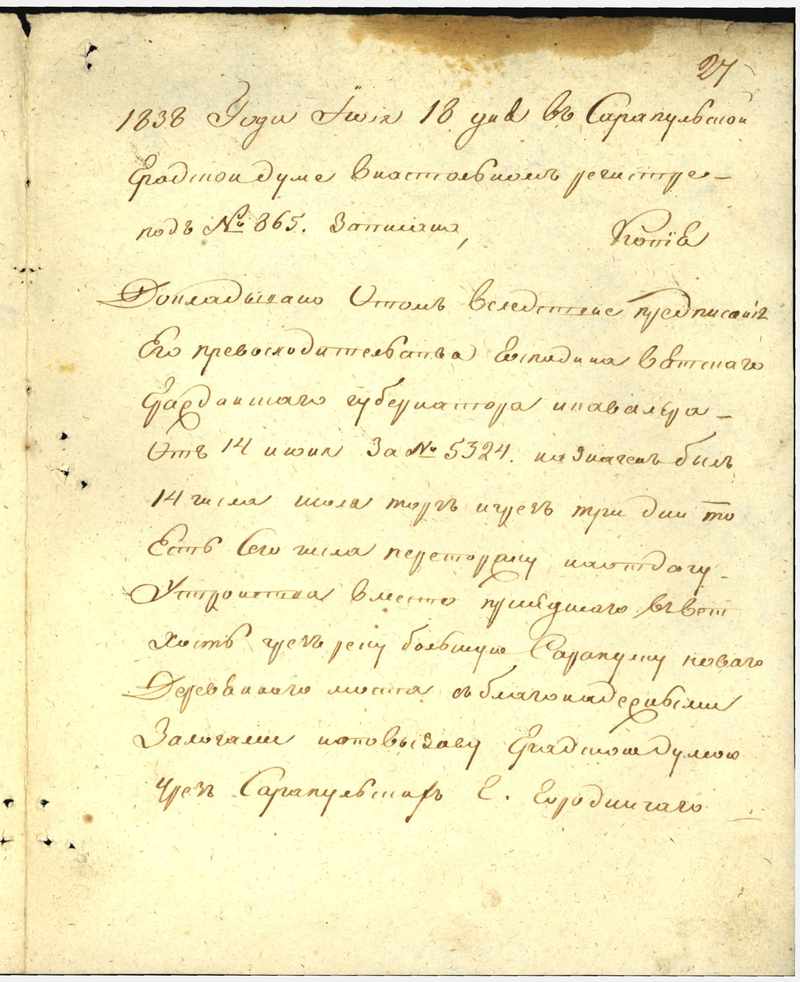 27
1838 Года Июля 18 дня въ Сарапульской
Градской думе внастольномъ регистре
подъ № 865. Записана, Копiя
Докладывано Отомъ вследствие предписанiя
Его превосходительства Господина вятскаго
Гражданскаго губернатора икавалера
Отъ 14 июня За № 5324. назначенъ былъ
14 числа июля торгъ ичрезъ три дни то
Есть Сего числа переторжку наотдачу
Устройства вместо пришедшаго въвет
хость чрезъ реку большую Сарапулку новаго
Деревяннаго моста съблагонадежными
Залогами ипо вызову Градскою думою
чрезъ Сарапульскаго Г. Городничаго